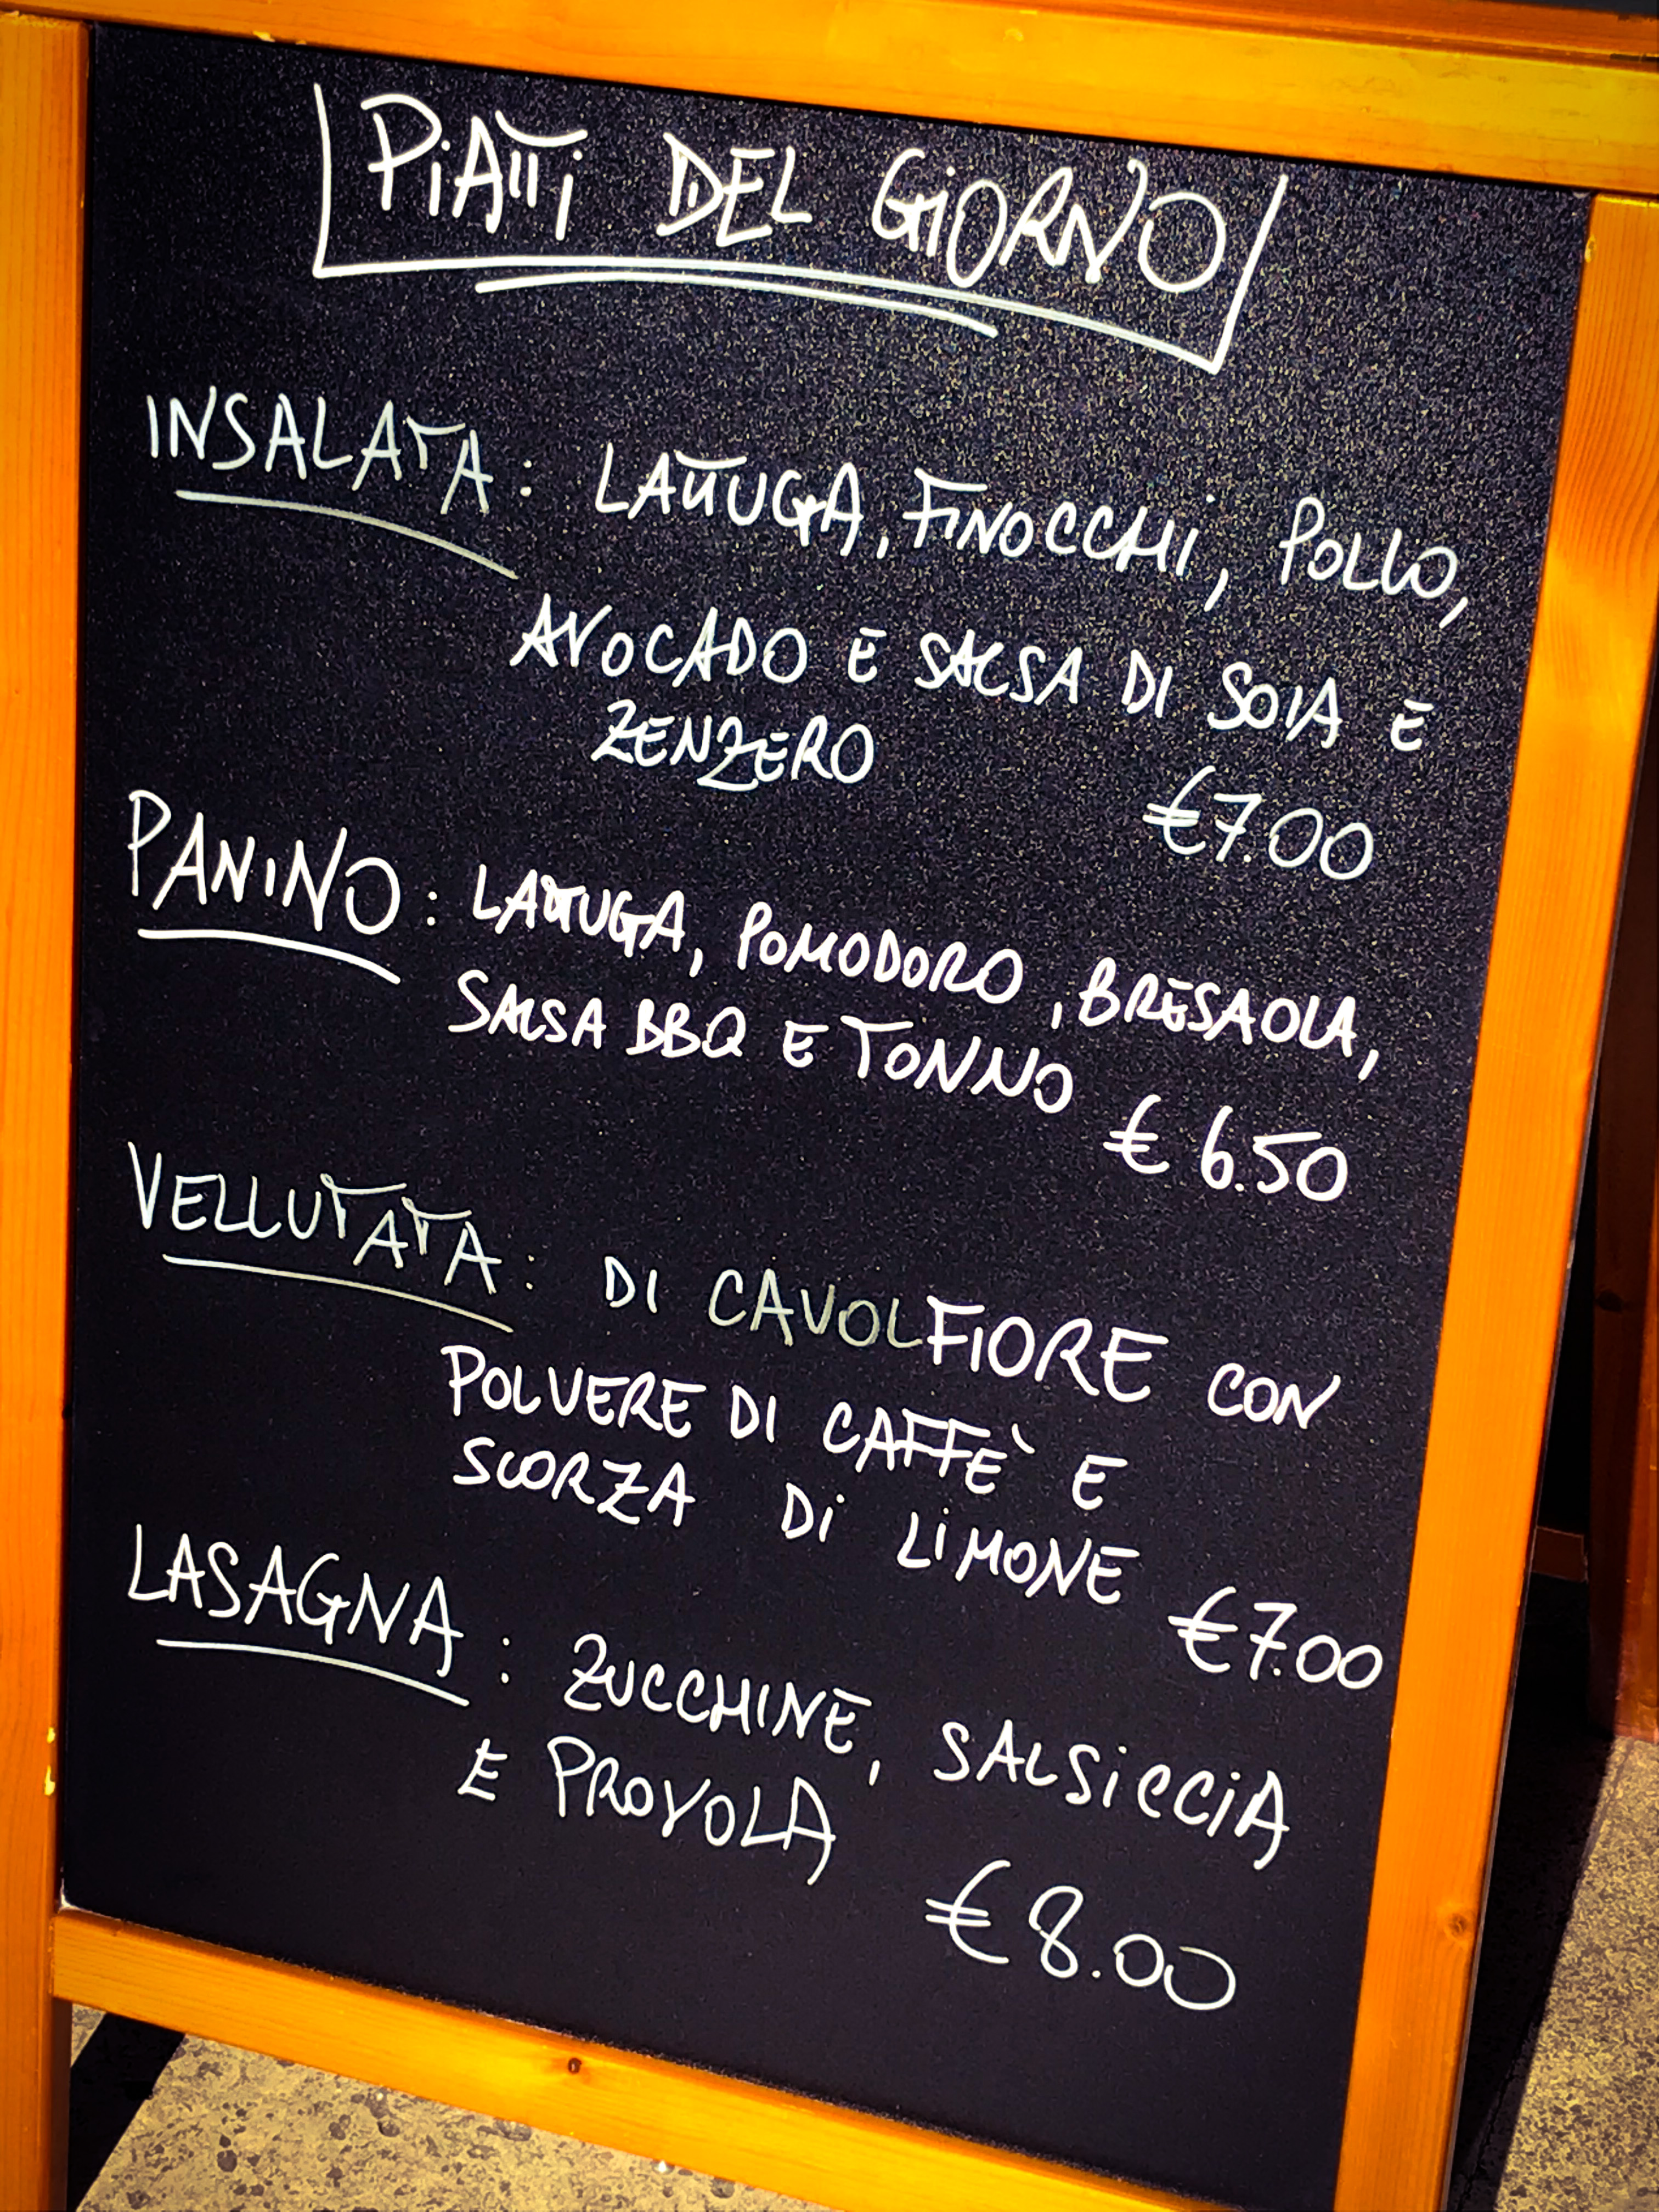 PiATTi DEL GiORNO
INSALATA: LATTUGA, FINOCCHi, POLLO,
AVOCADO E SALSA DI SOIA E
ZENZERO
€7.00
PANINO: LATTUGA, POMODORO, BRESAOLA,
SALSA BBQ E TONNO
€ 6.50
VELLUTATA: DI CAVOLFIORE CON
POLVERE DI CAFFÈ E
SCORZA Di LiMONE
€7.00
LASAGNA: ZUCCHINE, SALSiCCiA
E PROVOLA
€8.00